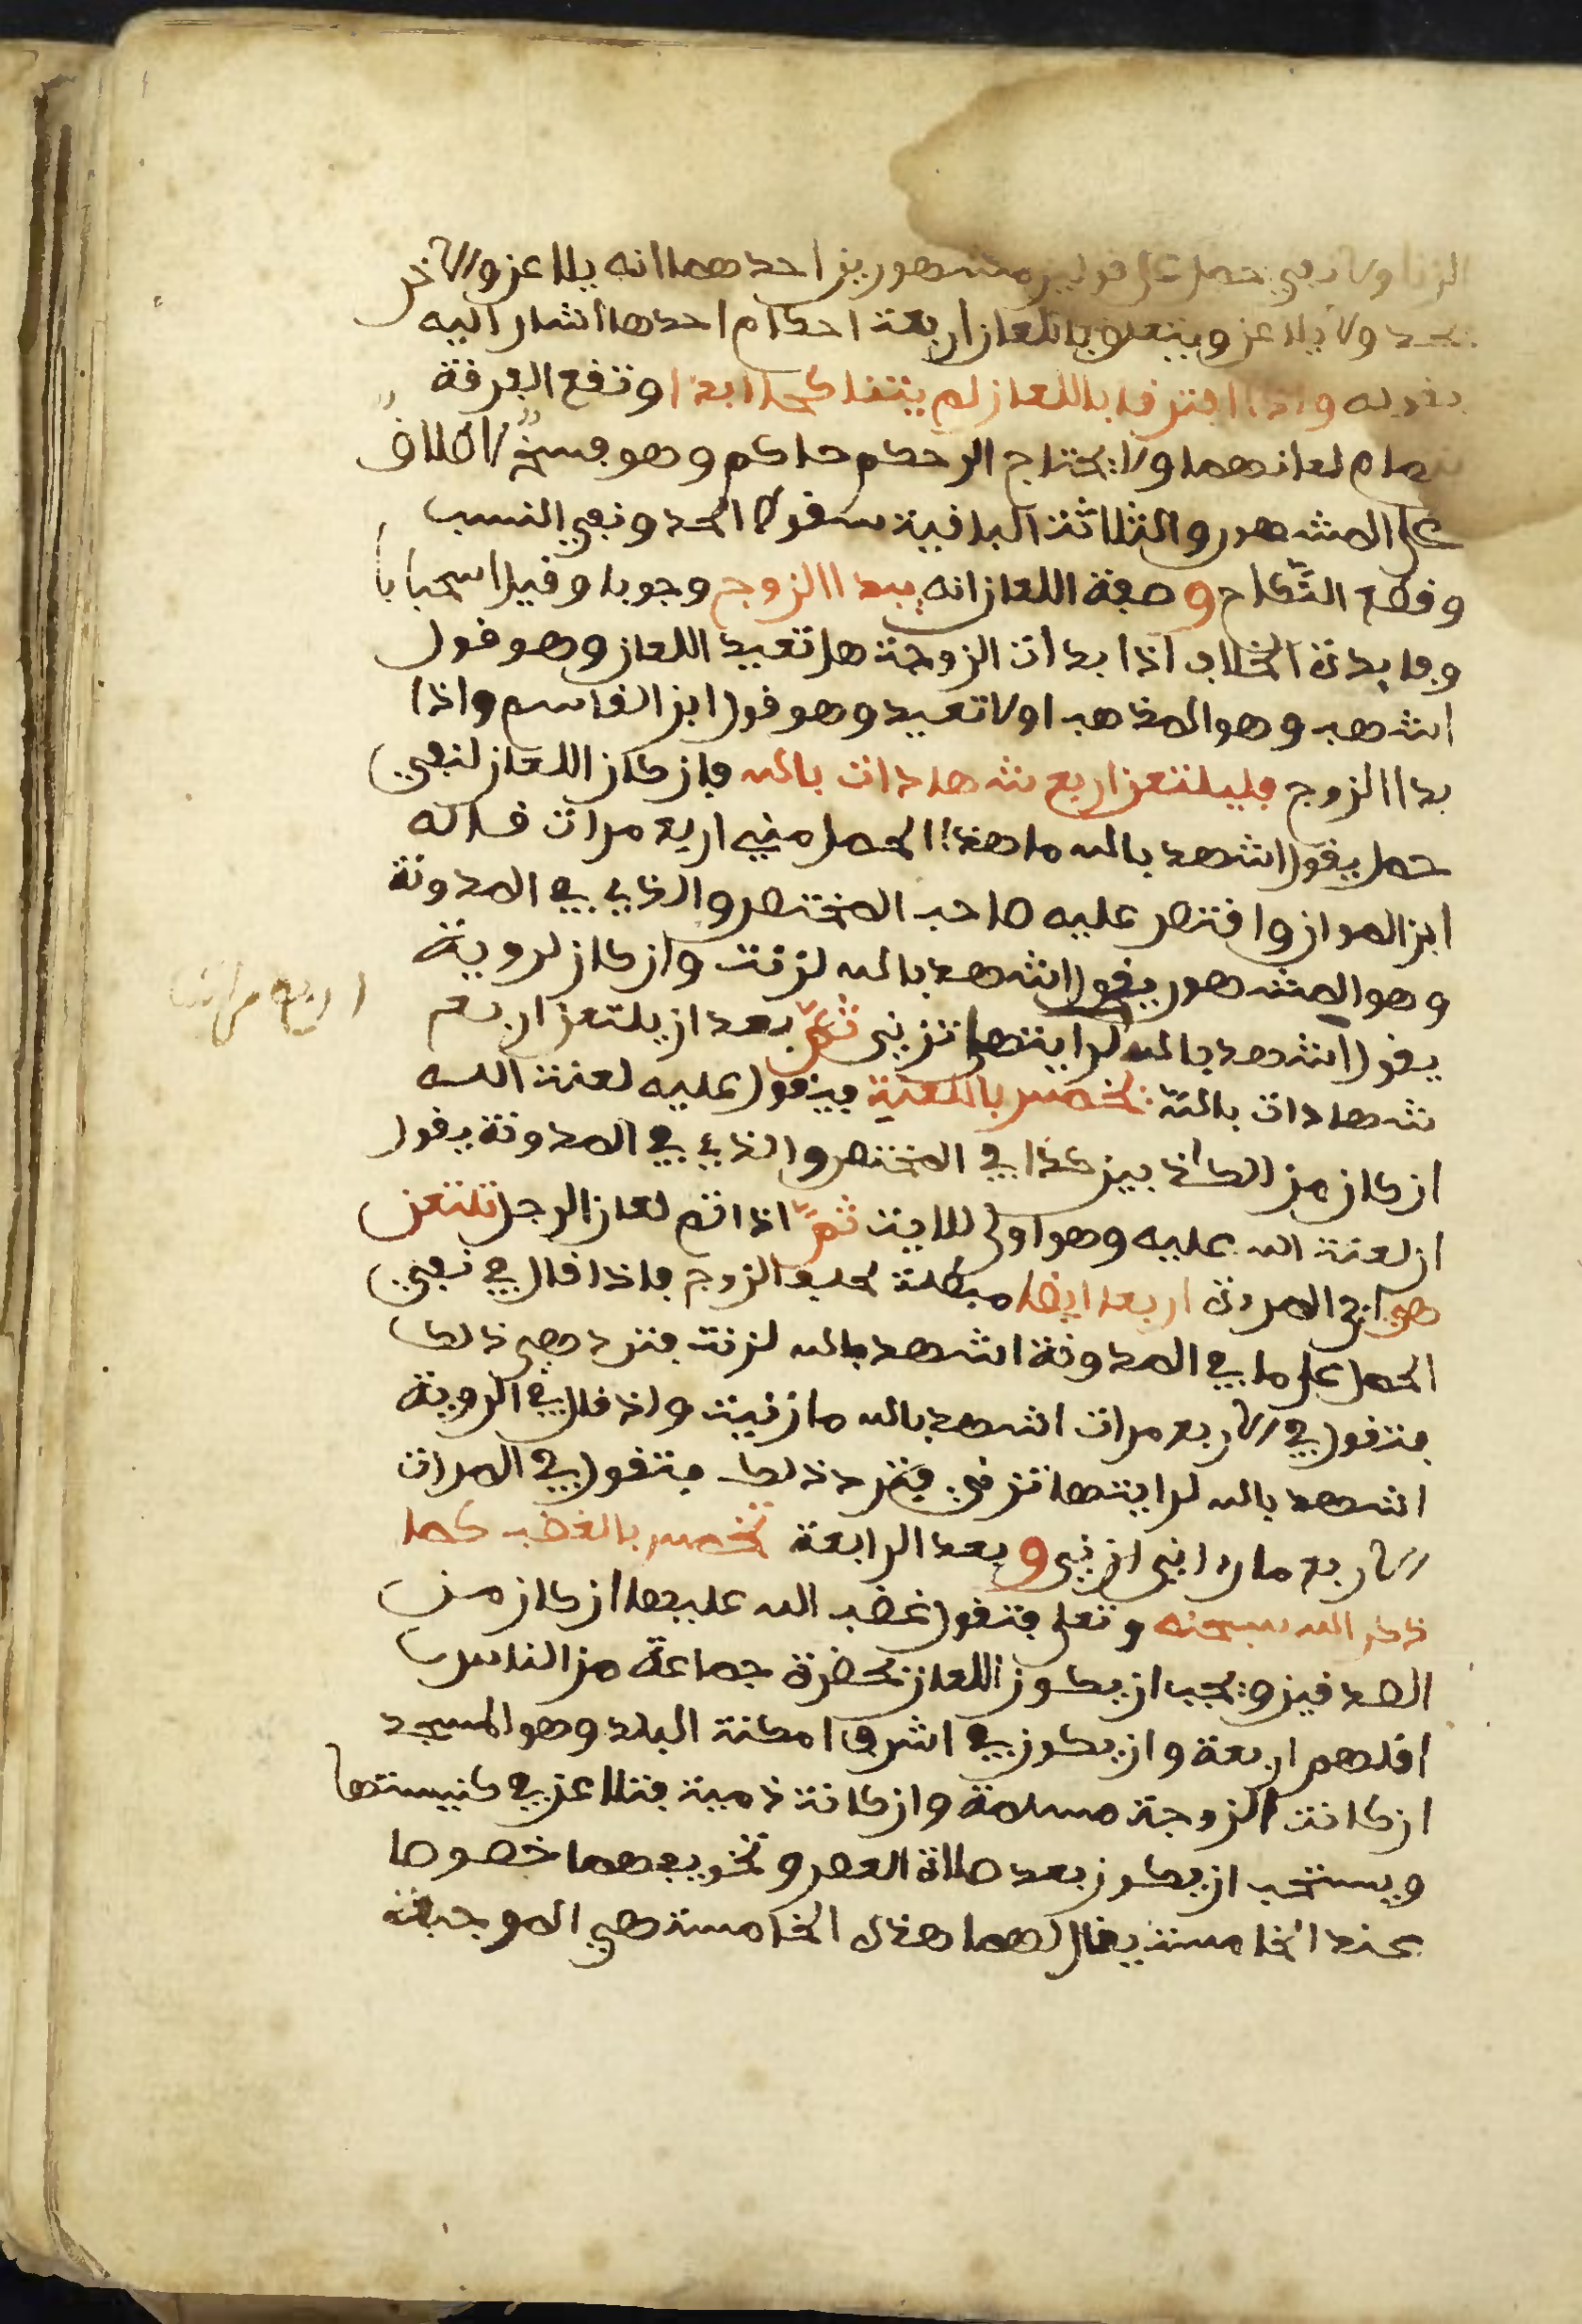 الزنا ولا نفي حمل على قولين مشهورين احدهما انه يلاعن والآخر
يحد ولا يلاعن ويتعلق باللعان اربعة احكام احدها اشار اليه
بقوله واذا افترقا باللعان لم يتناكحا ابدا وتقع الفرقة
بتمام لعانهما ولا يحتاج الى حكم حاكم وهو فسخ لا طلاق
على المشهور والثلاثة الباقية سقوط الحد ونفي النسب
وقطع النكاح وصفة اللعان انه يبدا الزوج وجوبا وقيل استحبابا
وفايدة الخلاف اذا بدات الزوجة هل تعيد اللعان وهو قول
اشهب وهو المذهب اولا تعيد وهو قول ابن القاسم واذا
بدا الزوج فليلتعن اربع شهادات بالله فان كان اللعان لنفي
حمل يقول اشهد بالله ما هذا الحمل مني اربع مرات قاله
ابن المواز واقتصر عليه صاحب المختصر والذي في المدونة
وهو المشهور يقول اشهد بالله لزنت وان كان لروية
يقول اشهد بالله لرايتها تزني ثم بعد ان يلتعن اربع
اربع مرات
شهادات بالله يخمس باللعنة فيقول عليه لعنت الله
ان كان من الكاذبين كذا في المختصر والذي في المدونة يقول
ان لعنة الله عليه وهو اولى للاية ثم اذا تم لعان الرجل تلتعن
هي اي المرءة اربعا ايضا مبطلة لحلف الزوج فاذا قال في نفي
الحمل على ما في المدونة اشهد بالله لزنت فترد هي ذلك
فتقول في الاربع مرات اشهد بالله ما زنيت واذ قال في الروية
اشهد بالله لرايتها تزني فترد ذلك فتقول في المرات
الاربع ما رءاني ازني وبعد الرابعة تخمس بالغضب كما
ذكر الله سبحنه وتعلى فتقول غضب الله عليها ان كان من
الصدقين ويجب ان يكون اللعان بحضرة جماعة من الناس
اقلهم اربعة وان يكون في اشرف امكنة البلد وهو المسجد
ان كانت الزوجة مسلمة وان كانت ذمية فتلاعن في كنيستها
ويستحب ان يكون بعد صلاة العصر وتخويفهما خصوصا
عند الخامسة يقال لهما هذه الخامسة هي الموجبة